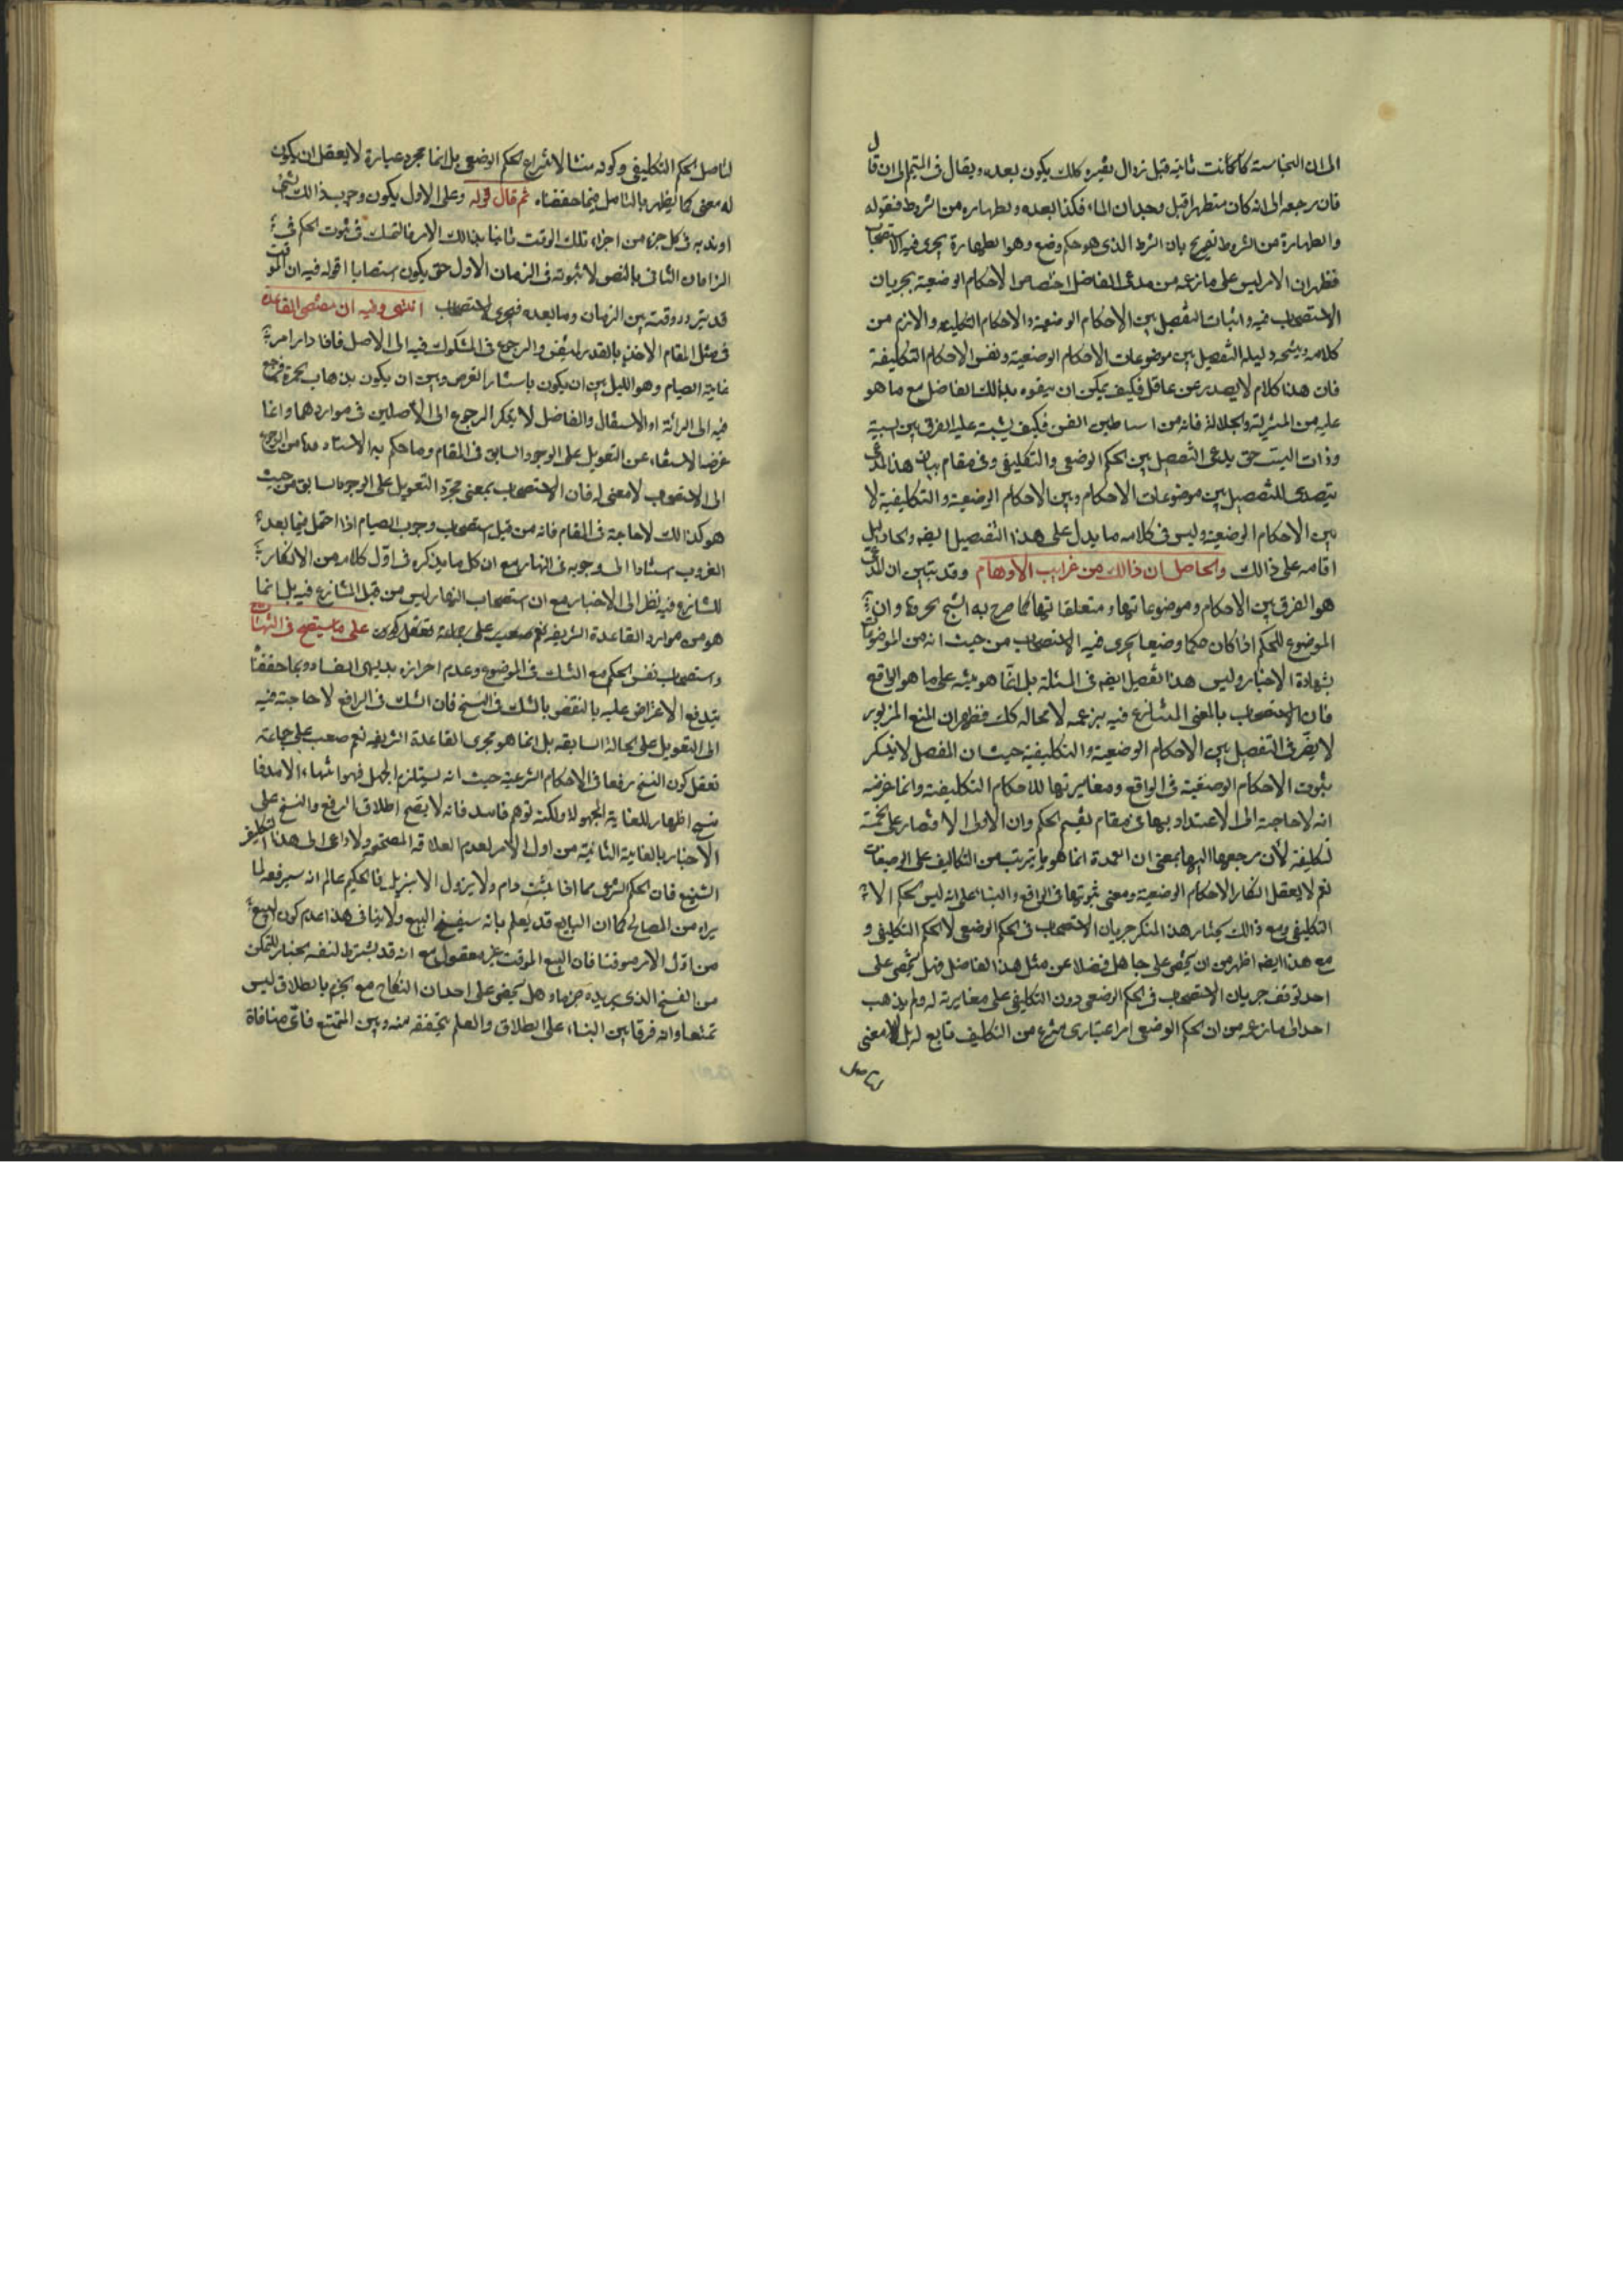 الى ان النجاسة كما كانت ثابتة قبل زوال تغيره كذلك يكون بعده ويقال في المتيمم الى ان قال
فان مرجعه الى انه كان متطهرا قبل وجدان الماء فكذا بعده والطهارة من الشروط فقوله
والطهارة من الشروط تصريح بان الشرط الذى هو حكم وضع وهو الطهارة يجرى فيه الاستصحاب
فظهر ان الامر ليس على ما زعمه من مدعى الفاضل اختصاص الاحكام الوضعية بجريان
الاستصحاب فيه واثبات التفصيل بين الاحكام الوضعية والاحكام التكليفية واللازم من
كلامه ونتيجه دليله التفصيل بين موضوعات الاحكام الوضعية ونفس الاحكام التكليفية
فان هذا كلام لا يصدر عن عاقل فكيف يمكن ان يتفوه بذالك الفاضل مع ما هو
عليه من المنزلة والجلالة فانه من اساطين الفن فكيف يشتبه عليه الفرق بين السببية
وذات السبب حتى يدعى التفصيل بين الحكم الوضعى والتكليفى وفى مقام بيان هذا المدعى
يتصدى للتفصيل بين موضوعات الاحكام وبين الاحكام الوضعية والتكليفية لا
بين الاحكام الوضعية وليس فى كلامه ما يدل على هذا التفصيل ايضه ولا دليل
اقامه على ذالك والحاصل ان ذالك من غرايب الاوهام وقد تبين ان المدعى
هو الفرق بين الاحكام وموضوعاتها ومتعلقاتها كما صرح به الشيخ وان
الموضوع للحكم اذا كان حكما وضعيا يجرى فيه الاستصحاب من حيث انه من الموضوعات
بشهادة الاخبار وليس هذا تفصيل ايضه فى المسئلة بل انما هو مبنى على ما هو الواقع
فان الاستصحاب بالمعنى المتنازع فيه بزعمه لا محالة كك فظهر ان المنع المزبور
لا يضر فى التفصيل بين الاحكام الوضعية والتكليفية حيث ان المفصل لا ينكر
بثبوت الاحكام الوضعية فى الواقع ومغايرتها للاحكام التكليفية وانما غرضه
انه لا حاجة الى الاعتداد بها فى مقام تقسيم الحكم وان الاولى الاقتصار على الخمسة
التكليفية لان مرجعها اليها بمعنى ان العمدة انما هو ما يترتب من التكاليف على الوضعيات
نعم لا يعقل انكار الاحكام الوضعية ومعنى ثبوتها فى الواقع والبناء على انه ليس الحكم الا
التكليفى ومع ذالك يختار هذا المنكر جريان الاستصحاب فى الحكم الوضعى لا الحكم التكليفى و
مع هذا ايضه اظهر من ان يخفى على جاهل فضلا عن مثل هذا الفاضل فهل يخفى على
احد توقف جريان الاستصحاب فى الحكم الوضعى دون التكليفى على مغايرته له ولم يذهب
احد الى ما زعمه من ان الحكم الوضعى امر اعتبارى منتزع من التكليف تابع له بل لا معنى
لتاصل الحكم التكليفى وكونه منشا لانتزاع الحكم الوضعى بل انما مجرد عبارة لا يعقل ان يكون
له معنى كما يظهر بالتامل فيما حققناه ثم قال قوله وعلى الاول يكون وجوب ذالك الشئ
او ندبه فى كل جزء من اجزاء تلك الوقت ثابتا بذالك الامر فالتمسك فى ثبوت الحكم فى
الزمان الثانى بالنص لا بثبوته فى الزمان الاول حتى يكون استصحابا اقوله فيه ان الموقت
قد يتردد وقته بين الزمان وما بعده فيجرى الاستصحاب انتهى وفيه ان مقتضى القاعدة
فى مثل المقام الاخذ بالقدر المتيقن والرجوع فى المشكوك فيه الى الاصل فاذا دار امر
غاية الصيام وهو الليل بين ان يكون باستتار القرص وبين ان يكون بذهاب الحمرة فمرجع
فيه الى البرائة او الاشتغال والفاضل لا ينكر الرجوع الى الاصلين فى مواردهما وانما
غرضه الاستغناء عن التعويل على الوجود السابق فى المقام وما حكم به الاستاد من الرجوع
الى الاستصحاب لا معنى له فان الاستصحاب بمعنى مجرد التعويل على الوجود السابق من حيث
هو كذالك لا حاجة فى المقام فانه من قبيل استصحاب وجوب الصيام اذا احتمل فيما بعد
الغروب استنادا الى وجوبه فى النهار مع ان كل ما يذكره فى اول كلامه من الانكار
للتنازع فيه نظرا الى الاخبار مع ان استصحاب النهار ليس من قبل المتنازع فيه بل انما
هو من موارد القاعدة الشريفه نعم صعب على جماعة تعقل كونه على ما سيتضح فى النهايات
واستصحاب نفس الحكم مع الشك فى الموضوع وعدم احرازه بديهى الفساد وبما حققنا
يندفع الاعتراض عليه بالنقض بالشك فى النسخ فان الشك فى الرافع لا حاجة فيه
الى التعويل على الحالة السابقه بل انما هو مجرى القاعدة الشريفه نعم صعب على جماعة
تعقل كون النسخ رفعا فى الاحكام الشرعية حيث انه يستلزم الجهل فهو انتهاء الامد فا
اظهار للغاية المجهولة ولكنه توهم فاسد فانه لا يصح اطلاق الرفع والنسخ على
الاخبار بالغاية الثابتة من اول الامر لعدم العلاقة المصححه ولا داعى الى هذا التكلف
الشنيع فان الحكم الشرعى مما اذا ثبت دام ولا يزول الا بمزيل فالحكيم عالم انه سيرفعه لما
يراه من المصالح كما ان البايع قد يعلم بانه سيفسخ البيع ولا ينافى هذا عدم كون البيع
من اول الامر موقتا فان البيع الموقت غير معقول مع انه قد يشترط لنفسه الخيار للتمكن
من الفسخ الذى يريده جزما وهل يخفى على احد ان النكاح مع الجزم بالطلاق ليس
تمتعا وانه فرقا بين البناء على الطلاق والعلم بتحققه منه وبين التمتع فاى منافاة